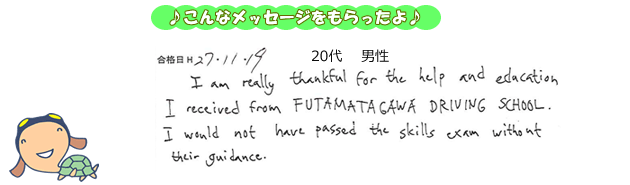 ♪こんなメッセージをもらったよ♪
合格日 H 27・11・19 20代 男性
I am really thankful for the help and education
I received from FUTAMATAGAWA DRIVING SCHOOL.
I would not have passed the skills exam without
their guidance.